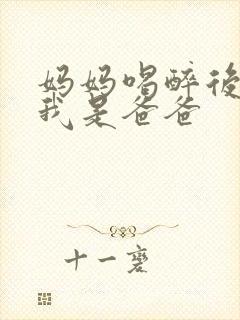 妈妈喝醉後
我是爸爸
十一寒